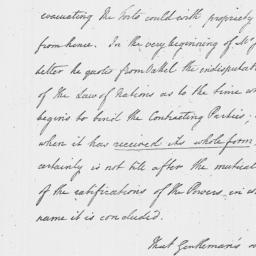 evacuating the Posts could with propriety
from hence. In the very beginning of Mr
letter he quotes from Vattel the indisputab
of the Law of Nations as to the time w
begins to bind the Contracting Parties,
when it has received its whole form,
certainly is not till after the mutual
of the ratifications of the Powers in w
name it is concluded.
That Gentleman's